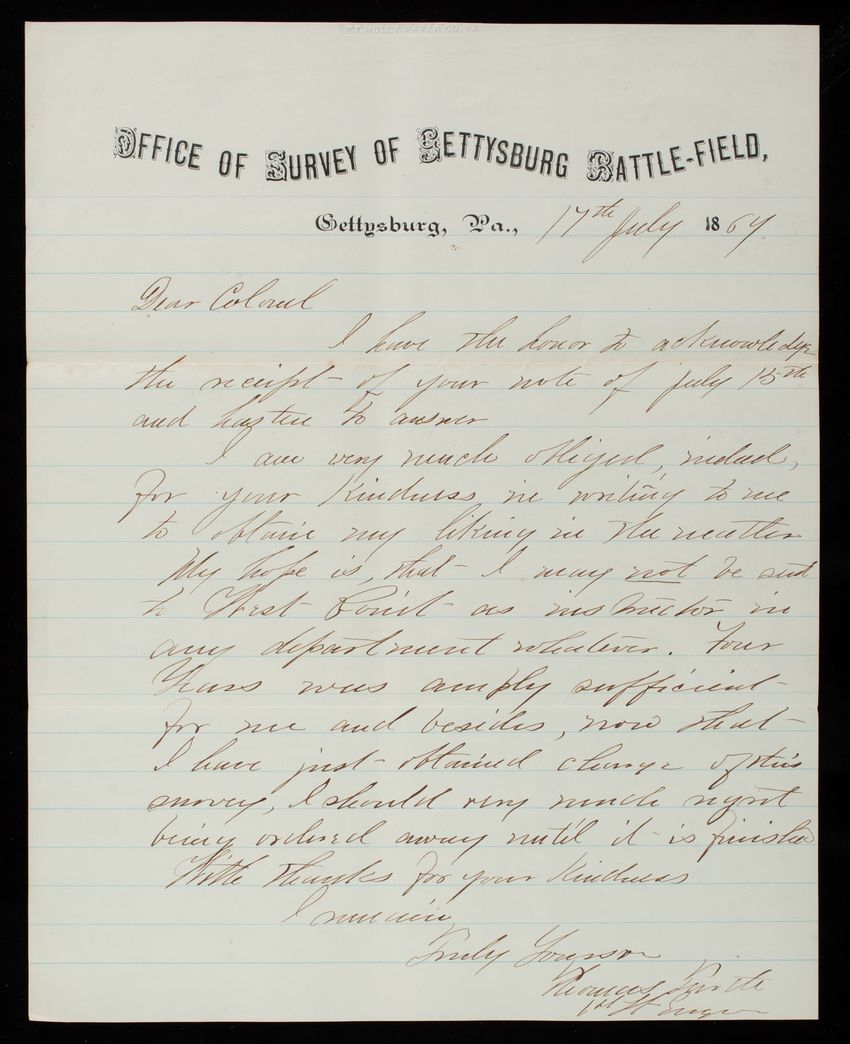 MT. HOLLY PAPER CO. PA.
OFFICE OF SURVEY OF GETTYSBURG BATTLE-FIELD,
Gettysburg, Pa., 17th July 1869.
Dear Colonel
I have the honor to acknowledge
the receipt of your note of July 15th
and hasten to answer
I am very much obliged, indeed,
for your kindness in writing to me
to obtain my liking in the matter
My hope is, that I may not be sent
to West Point as instructor in
any department whatever. Four
Years was amply sufficient
for me and besides, now that
I have just obtained charge of this
survey, I should very much regret
being ordered away until it is finished
With thanks for your Kindness
I remain
Truly Yours
Thomas Turtle
1st Lt Engrs